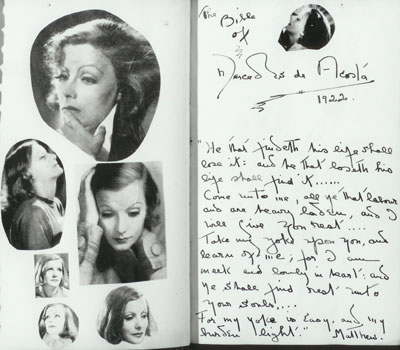 The Bible
of
Mercedes de Acosta
1922.
"He that findeth his life shall
lose it: and he that loseth his
life shall find it......
Come unto me, all ye that labour
and are heavy laden, and I
will give you rest....
Take my yoke upon you, and
learn of me; for I am
meek and lowly in heart: and
ye shall find rest unto
your souls....
For my yoke is easy, and my
burden light." Matthew.